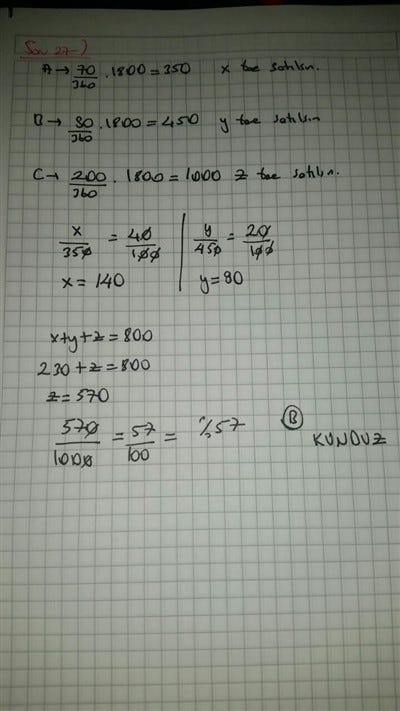 Soru 27-)
A → 70/360 . 1800 = 350 x tane satılsın.
B → 90/360 . 1800 = 450 y tane satılsın
C → 200/360 . 1800 = 1000 z tane satılsın.
x/350 = 40/100 | y/450 = 20/100
x = 140 | y = 90
x+y+z = 800
230+z = 800
z = 570
570/1000 = 57/100 = %57 B
KUNDUZ